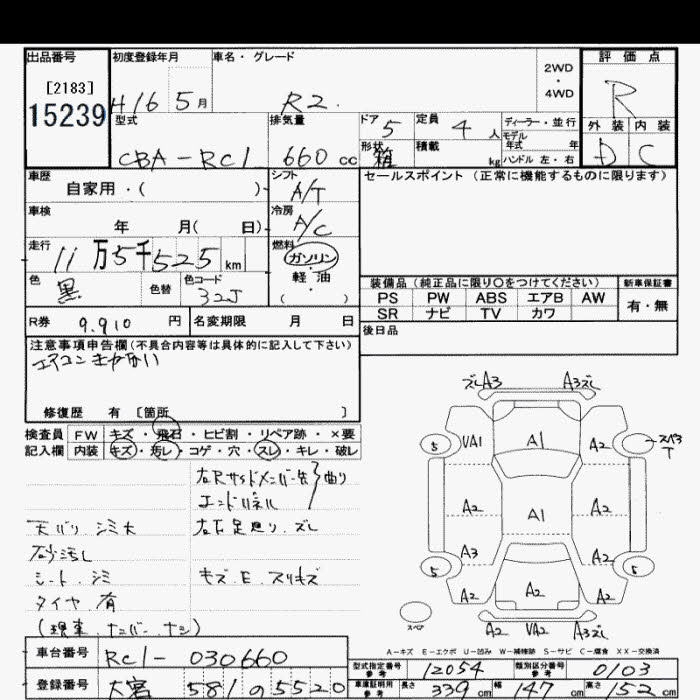 出品番号 初度登録年月 車名・グレード 評価点
[2183] 2WD・4WD
15239 H16 5月 R2. R
型式 排気量 ドア 5 定員 4人 ディーラー・並行 外装 内装
モデル年式 年
CBA-RC1 660cc 形状 箱 積載 kg ハンドル 左・右 D C
車歴 シフト セールスポイント(正常に機能するものに限ります)
自家用・( ) A/T
車検 冷房
年 月( 日) A/C
走行 11万5千525km 燃料
ガソリン・軽油
( )
色 黒 色替 色コード 32J
装備品(純正品に限り〇をつけてください) 新車保証書
PS PW ABS エアB AW 有・無
SR ナビ TV カワ
R券 9.910円 名変期限 月 日 後日品
注意事項申告欄(不具合内容等は具体的に記入して下さい)
エアコンきかない
修復歴 有 〔箇所 〕
検査員 FW キズ・飛石・ヒビ割・リペア跡・×要
記入欄 内装 キズ・汚レ・コゲ・穴・スレ・キレ・破レ
曲り
エンドパネル
天バリ シミ大
砂汚し
シート.シミ キズ.E.スリキズ
タイヤ.有
(現車 ナンバーナシ)
ズレA3 A3ズレ
5 VA1 A1 A2 スペ3
T
A2 A1 A2
A3 A2
5 A2 A2 A2 5
スペア
A2 VA2 A3ズレ
A-キズ E-エクボ U-凹み W-補修跡 S-サビ C-腐食 XX-交換済
車台番号 RC1-030660 型式指定番号 参考 12054 類別区分番号 参考 0103
登録番号 大宮 581 の 5520 車庫証明用 参考 長さ 339cm 幅 147cm 高さ 152cm